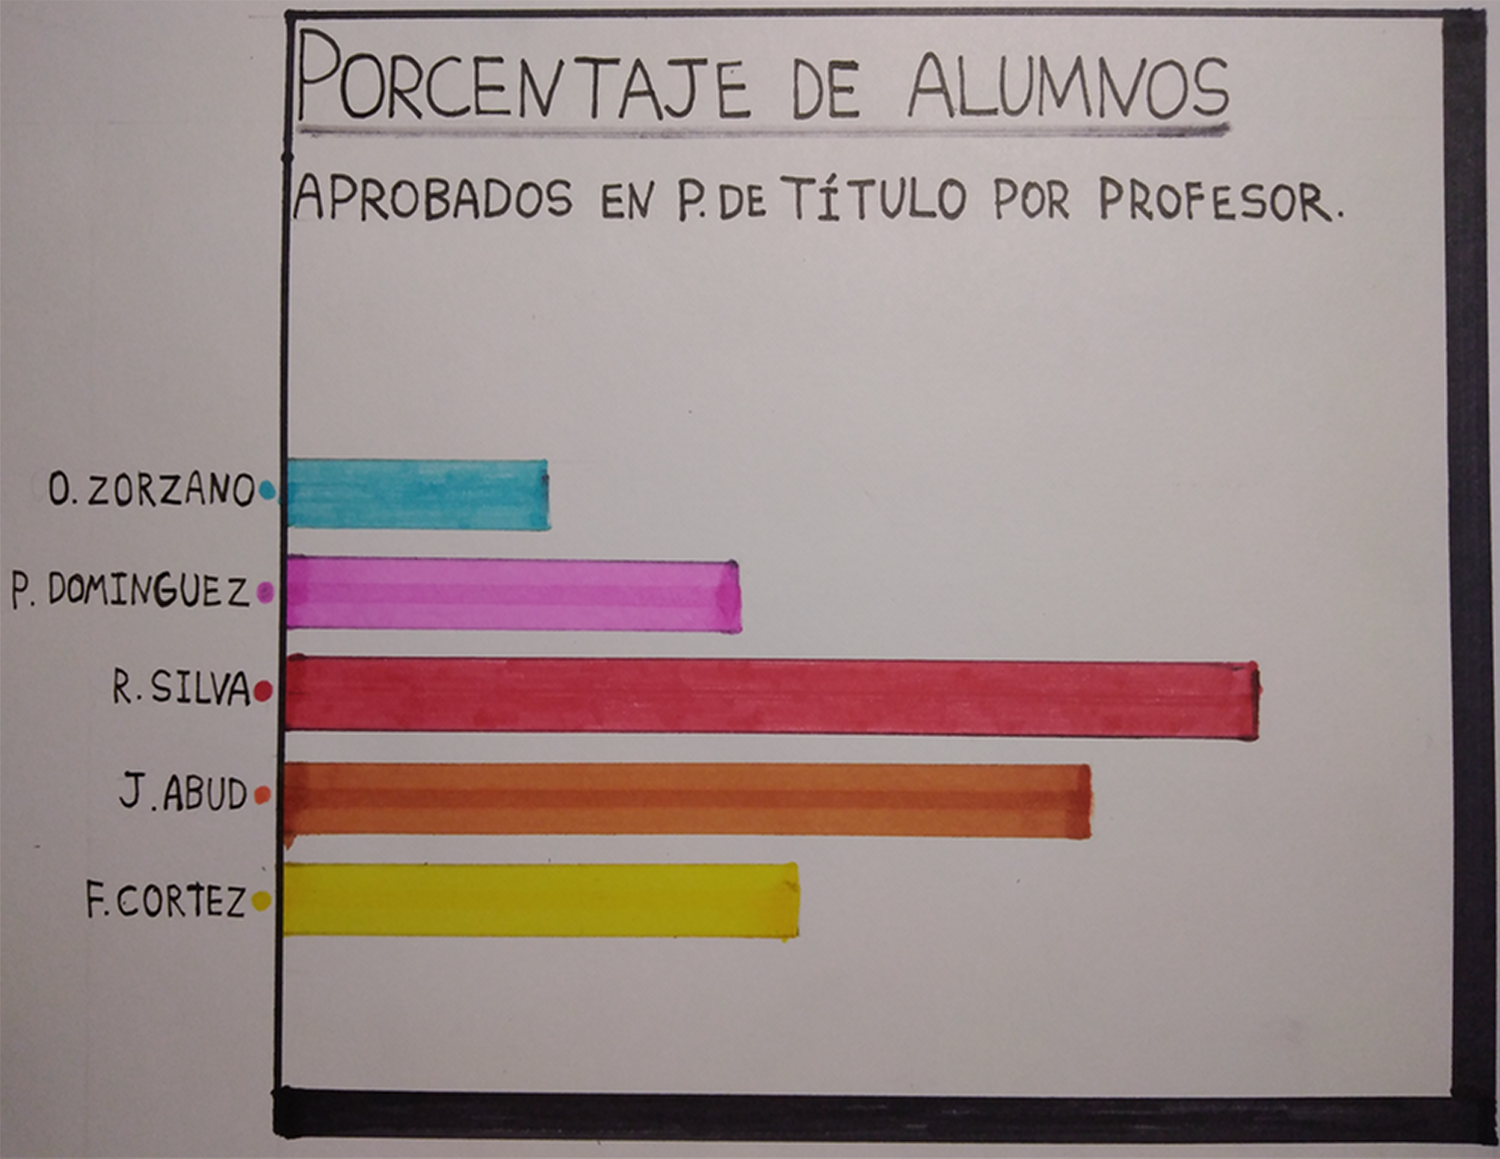 PORCENTAJE DE ALUMNOS
APROBADOS EN P. DE TÍTULO POR PROFESOR.
O. ZORZANO
P. DOMINGUEZ
R. SILVA
J. ABUD
F. CORTEZ